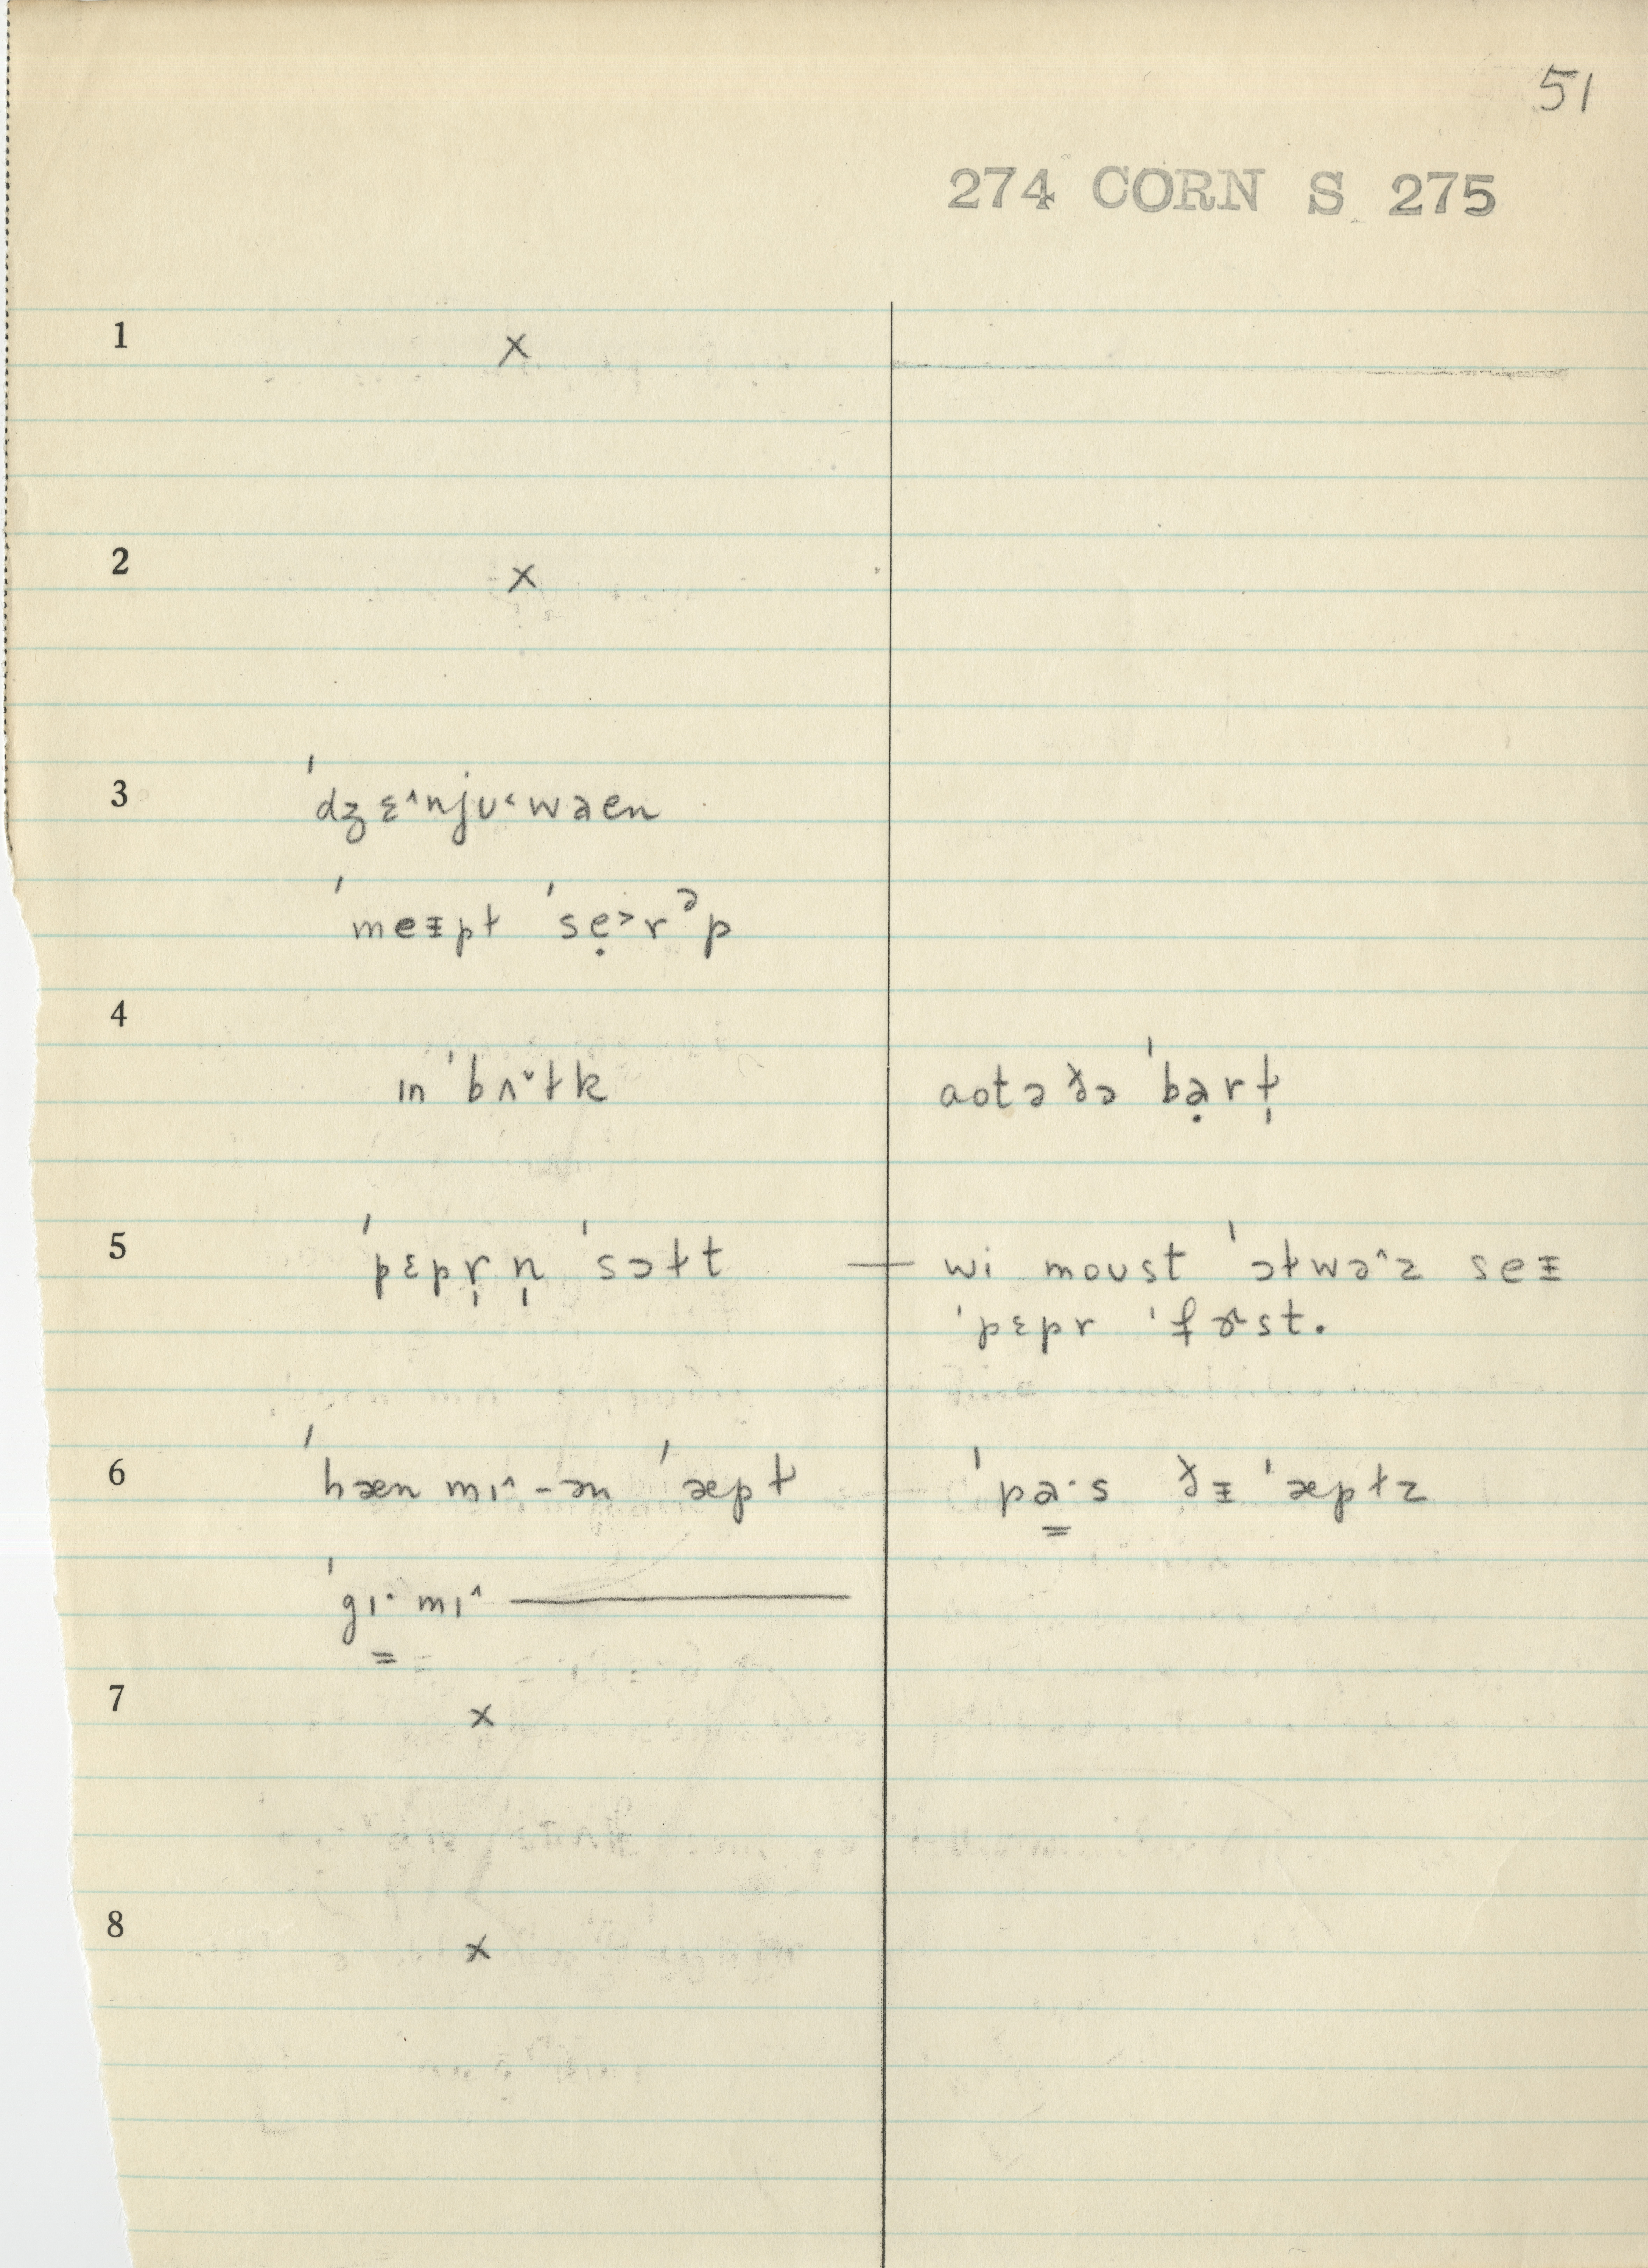 51
274 CORN S 275
1 x
2 x
3 ˈdʒɛ˄njʊ˂wəen
ˈmeᵻpɫ ˈsẹ˃rᵊp
4 ɪn ˈbʌ˅ɫk aotə ðə ˈbạrɫ̩
5 ˈpɛpr̩ n̩ ˈsɔɫt — wi moust ˈɔɫwə˄z seᵻ
ˈpɛpr ˈfɝst.
6 ˈhæn mɪ˄-ən ˈæpɫ ˈpa̳·s ðᵻ ˈæpɫz
ˈgɪ̳· mɪ˄ ———
7 x
8 x